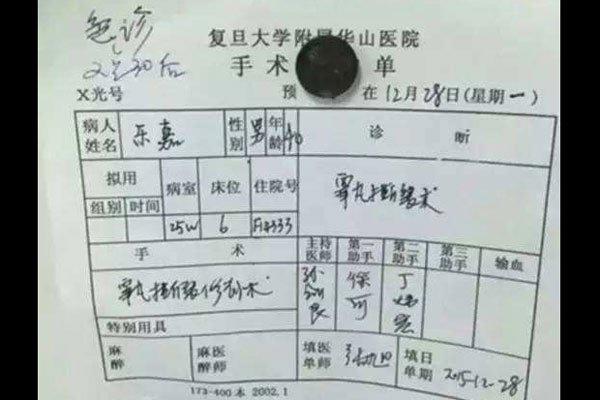 急诊
30后
复旦大学附属华山医院
手术 单
X光号 预 在12月28日(星期一)
病人姓名 乐嘉 性别 男 年龄 40 诊 断
拟用 病室 床位 住院号 睾丸
组别 时间
25W 6
手 术 主持医师 第一助手 第二助手 第三助手 输血
睾丸 修 术 徐 丁
特别用具
麻醉 麻醉医师 填单医师 填单日期 2015-12-28
173-400本 2002.1